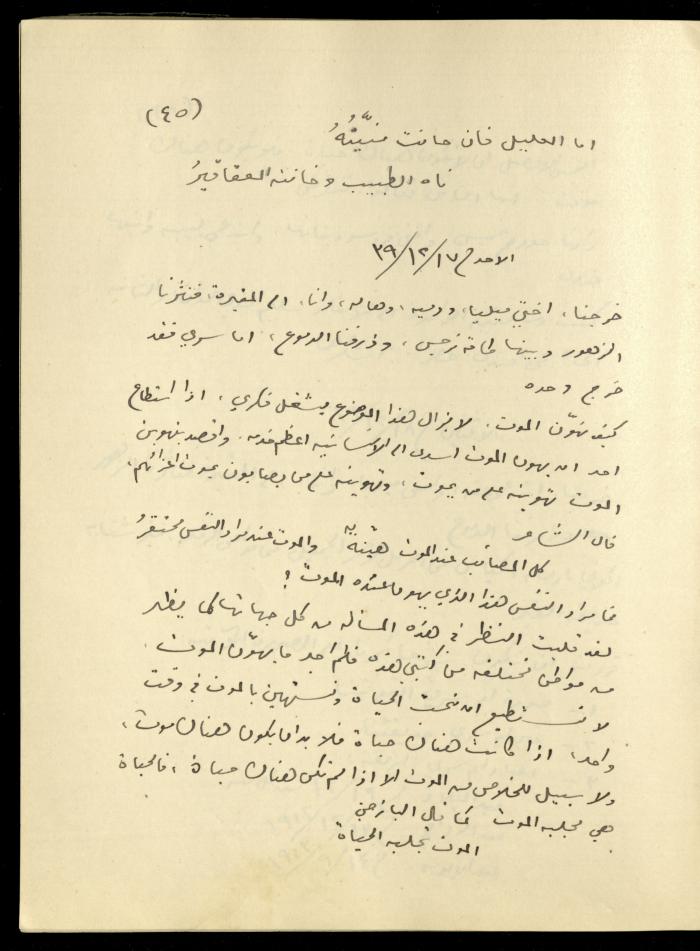 (٤٥)
اما العليل فان حانت منيَّتُهُ
تاه الطبيب وخانته العقاقيرُ
الاحد في ٣٩/١٢/١٧
خرجنا، اختي ميليا، ودميه، وهاله، وانا، الى المقبرة، فنثرنا
الزهور وبينها طاقة نرجس، وذرفنا الدموع، اما سري فقد
خرج وحده
كيف نهوّن الموت. لا يزال هذا الموضوع يشغل فكري، اذا استطاع
احد ان يهون الموت اسدى الى الانسانيه اعظم خدمه. واقصد بتهوين
الموت تهوينه على من يموت، وتهوينه على من يصابون بموت اعزائهم،
قال الشاعر
كل المصائب عند الموت هينة به والموت عند مراد النفس محتقرُ
فما مراد النفس هذا الذي يهون عنده الموت؟
لقد قلبت النظر في هذه المساله من كل جهاتها كما يظهر
من مواطن مختلفه من كتبي هذه فلم اجد ما يهوّن الموت.
لا نستطيع ان نحب الحياة ونستهين بالموت في وقت
واحد، اذا كانت هناك حياة فلا بد ان يكون هناك موت،
ولا سبيل للخلاص من الموت الا اذا لم تكن هناك حياة، فالحياة
هي مجلبه الموت كما قال اليازجي
الموت تجلبه الحياة